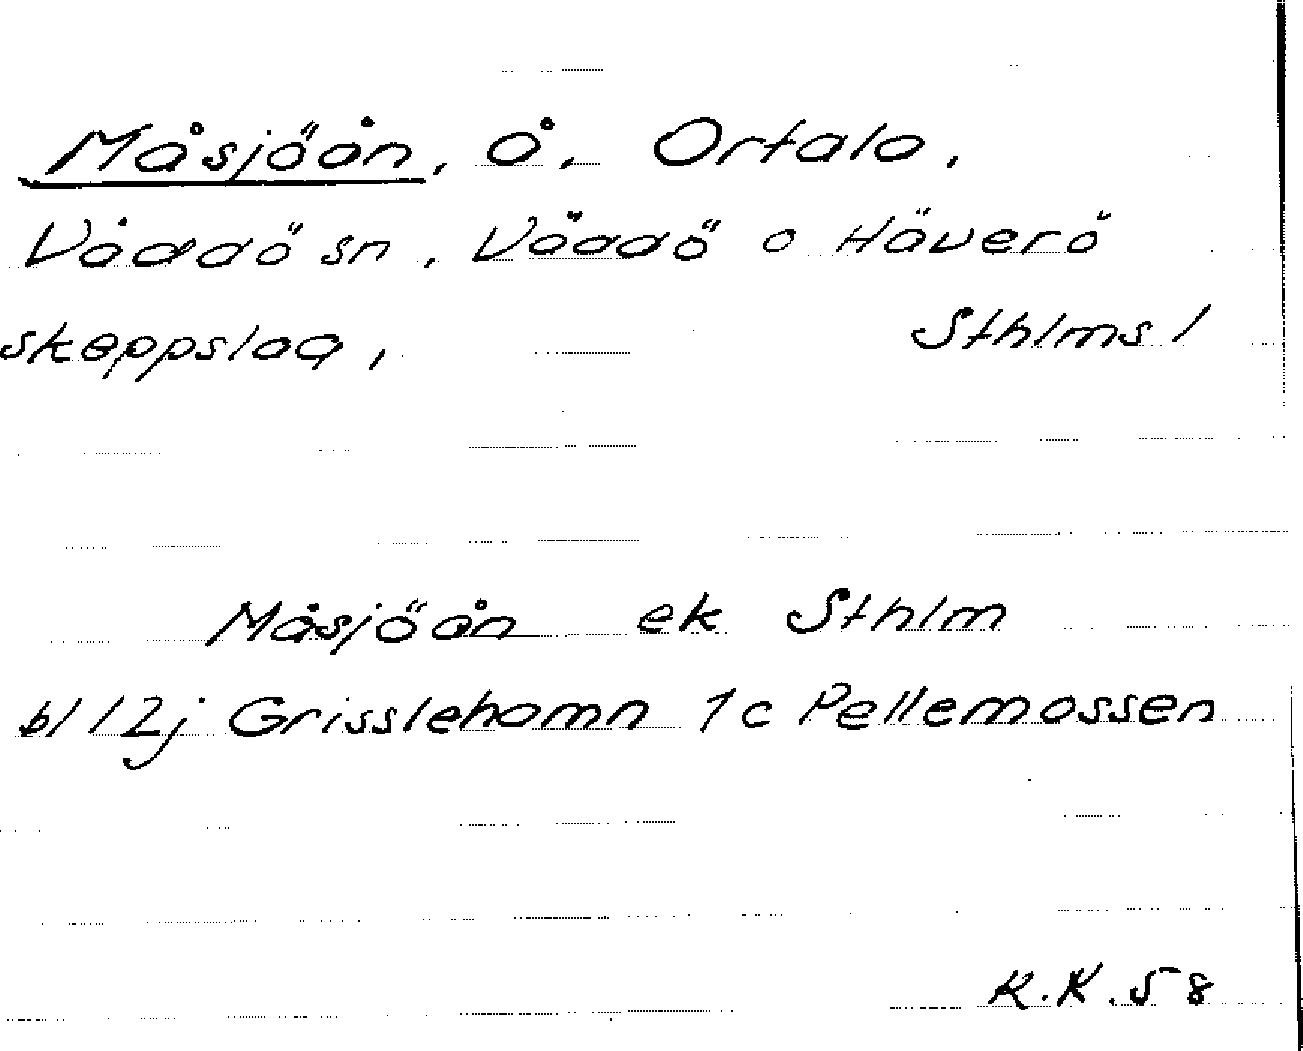 Måsjöån, å, Ortala,
Väddö sn, Väddö o Häverö
skeppslag, Sthlms l
Måsjöån ek Sthlm
bl 12j Grisslehamn 1c Pellemossen
K.K.58